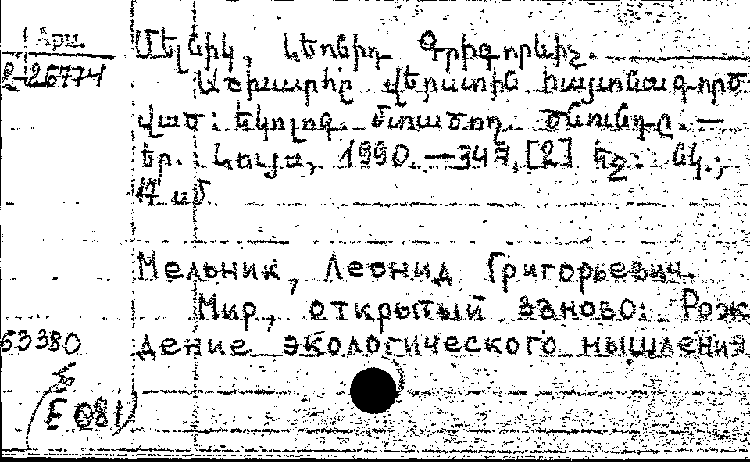 Արմ.
2-26774
Մելնիկ, Լեոնիդ Գրիգորևիչ.
Աշխարհը վերստին հայտնագործ
ված: Էկոլոգ. մտածող. ծնունդը. —
Եր. : Լույս, 1990. — 347, [2] էջ: նկ.;
17 սմ
Мельник, Леонид Григорьевич.
Мир, открытый заново: Рож
63380
дение экологического мышления
(E 081)